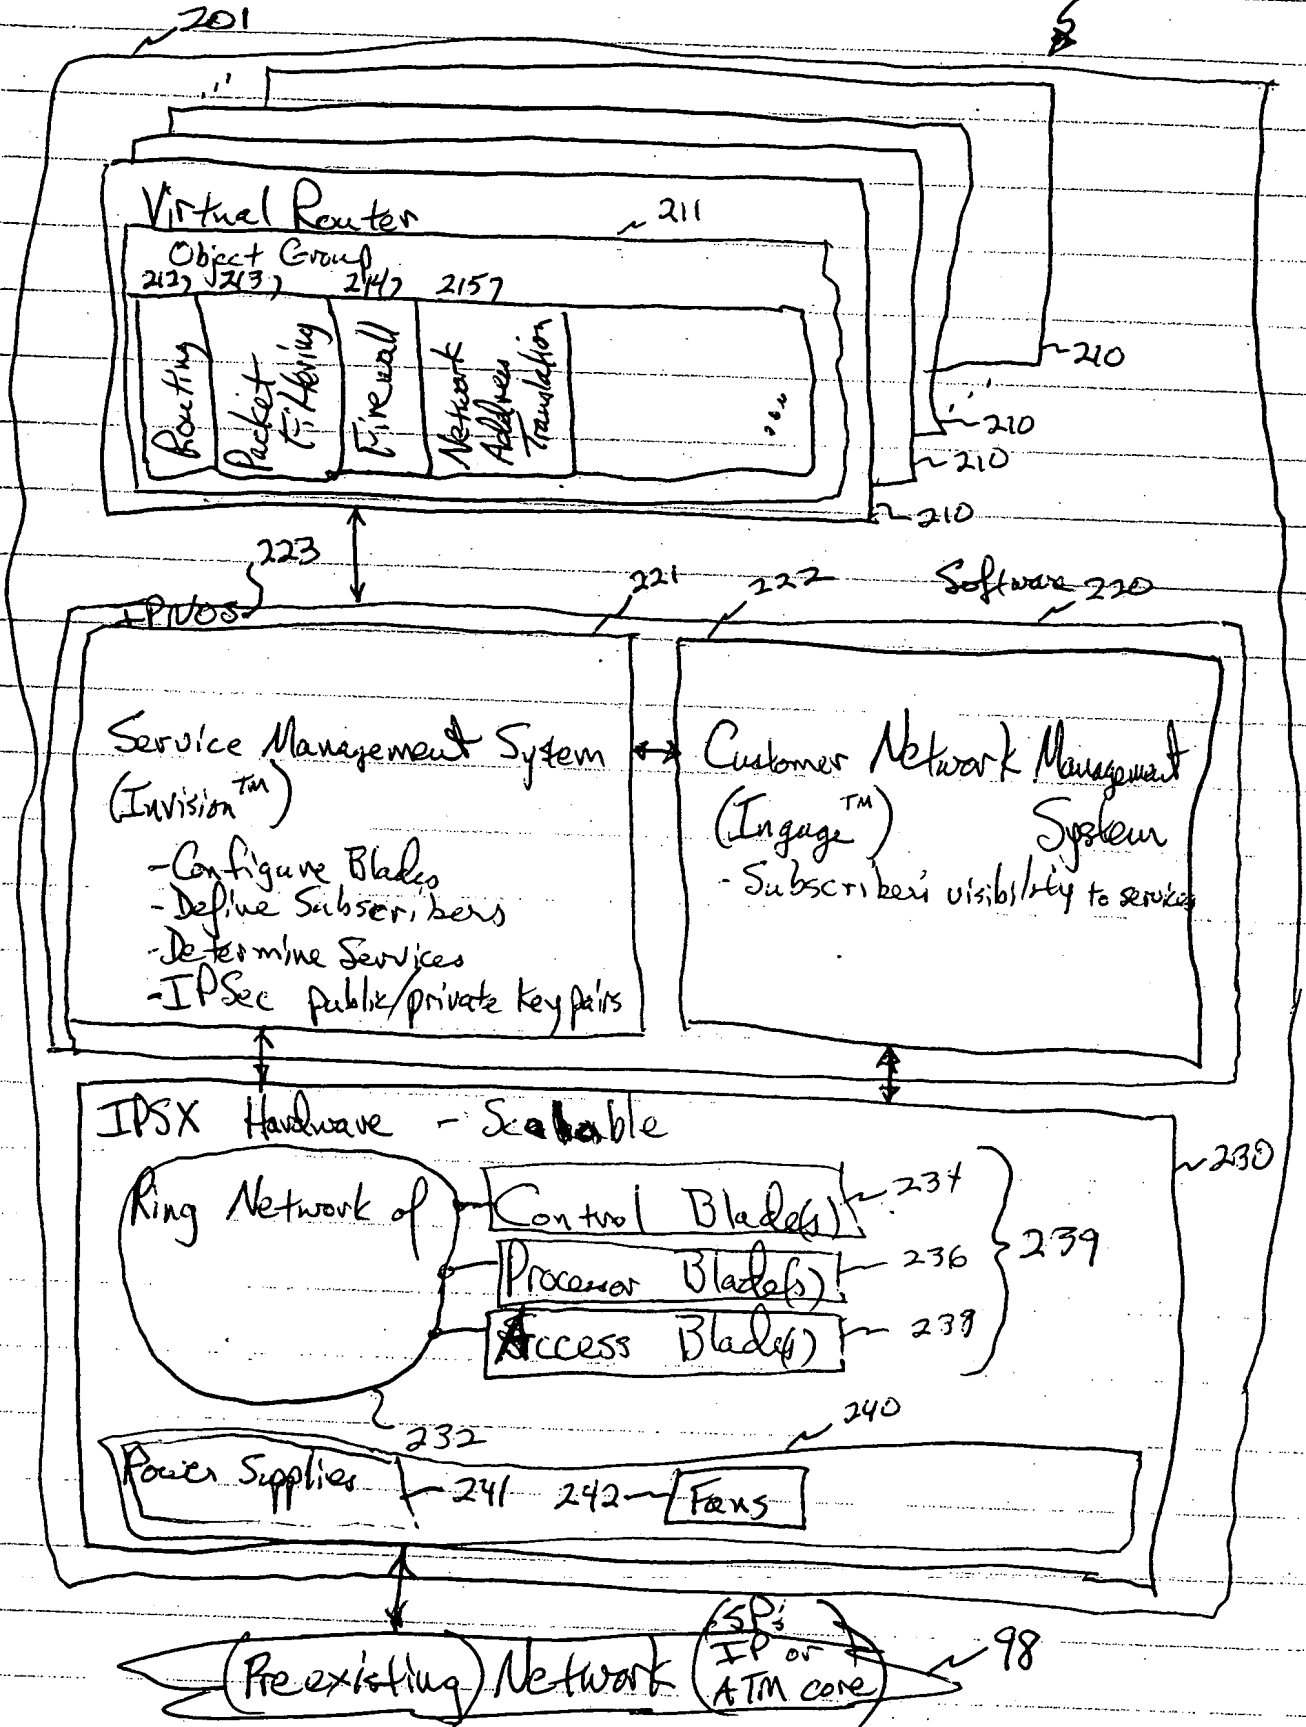 201
Virtual Router
211
Object Group
212 213 214 215
Routing
Packet
Filtering
Firewall
Network
Address
Translation
...
210
210
210
210
223
221
222
Software 220
IPNOS
Service Management System
(Invision™)
-Configure Blades
-Define Subscribers
-Determine Services
-IPSec public/private key pairs
Customer Network Management
(Ingage™) System
- Subscriber's visibility to services
IPSX Hardware - Scalable
230
Ring Network of
Control Blade(s)
234
Processor Blade(s)
236
239
Access Blade(s)
238
232
240
Power Supplies
241
242
Fans
(Preexisting) Network
(SP's
IP or
ATM core)
98